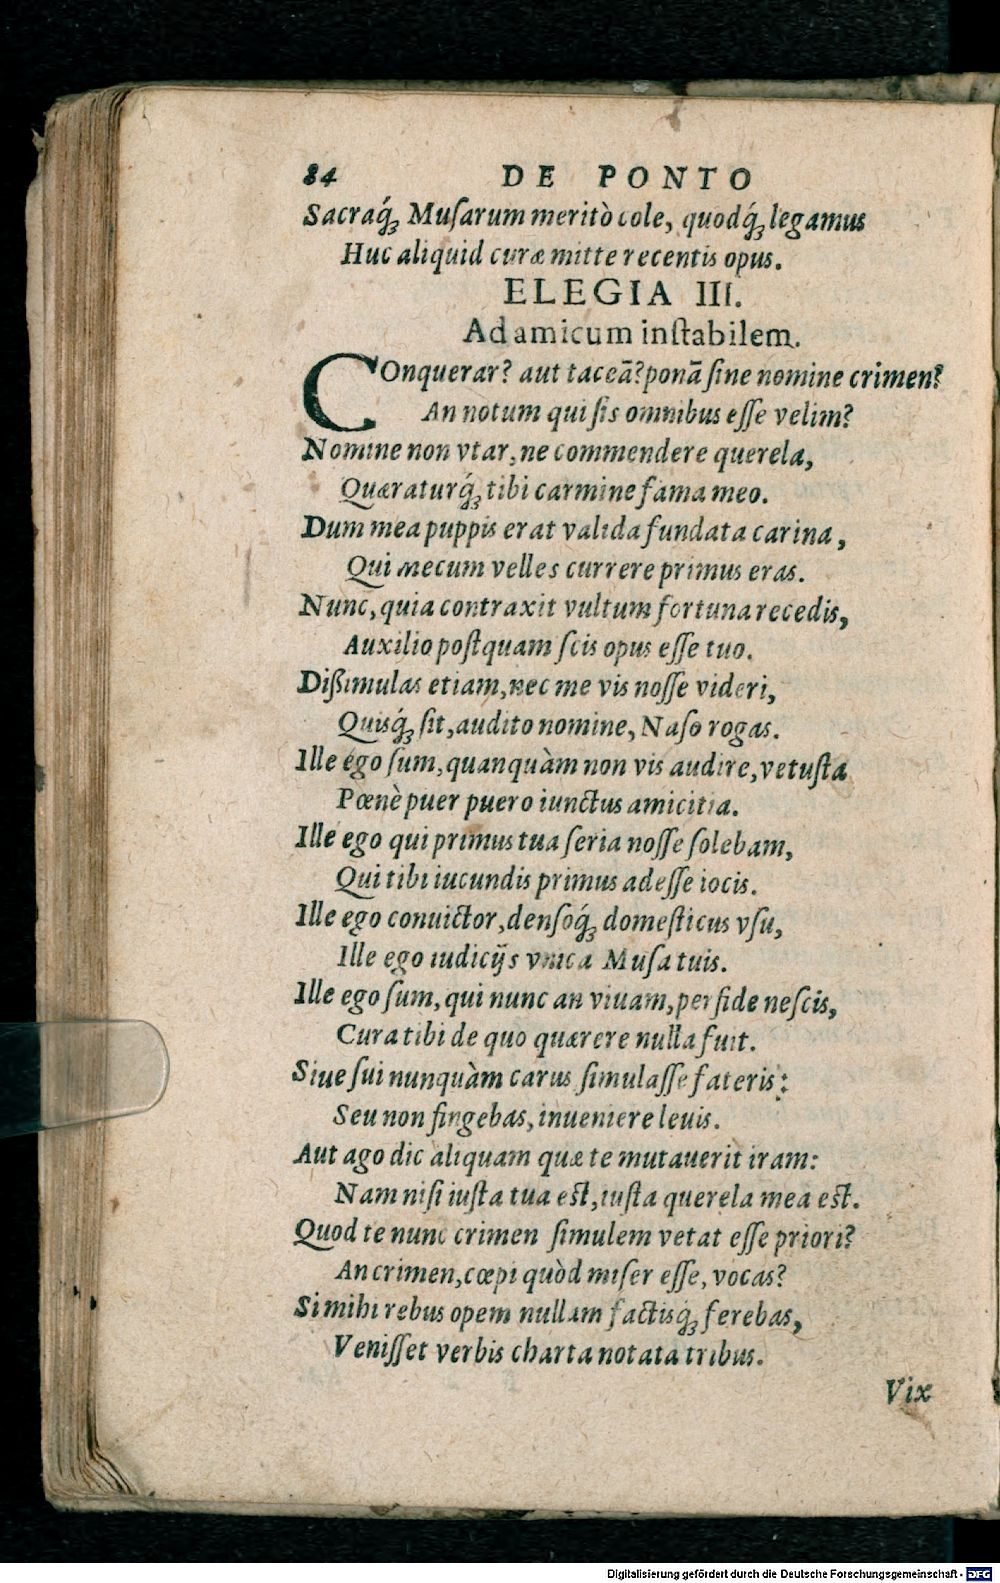 84 DE PONTO
Sacraq́ꝫ Muſarum meritò cole, quodq́ꝫ legamus
Huc aliquid curæ mitte recentis opus.
ELEGIA III.
Ad amicum inſtabilem.
COnquerar? aut taceā? ponā ſine nomine crimen?
An notum qui ſis omnibus eſſe velim?
Nomine non vtar, ne commendere querela,
Quæraturq́ꝫ tibi carmine fama meo.
Dum mea puppis erat valida fundata carina,
Qui mecum velles currere primus eras.
Nunc, quia contraxit vultum fortuna recedis,
Auxilio poſtquam ſcis opus eſſe tuo.
Dißimulas etiam, nec me vis noſſe videri,
Quisq́ꝫ ſit, audito nomine, Naſo rogas.
Ille égo ſum, quanquàm non vis audire, vetuſta
Pœnè puer puero iunctus amicitia.
Ille ego qui primus tua ſeria noſſe ſolebam,
Qui tibi iucundis primus adeſſe iocis.
Ille ego conuictor, denſoq́ꝫ domeſticus vſu,
Ille ego iudicijs vnica Muſa tuis.
Ille ego ſum, qui nunc an viuam, perfide neſcis,
Cura tibi de quo quærere nulla fuit.
Siue fui nunquàm carus ſimulaſſe fateris:
Seu non fingebas, inueniere leuis.
Aut ago dic aliquam quæ te mutauerit iram:
Nam niſi iuſta tua eſt, iuſta querela mea eſt.
Quod te nunc crimen ſimulem vetat eſſe priori?
An crimen, cœpi quòd miſer eſſe, vocas?
Si mihi rebus opem nullam factisq́ꝫ ferebas,
Veniſſet verbis charta notata tribus.
Vix
Digitalisierung gefördert durch die Deutsche Forschungsgemeinschaft - DFG